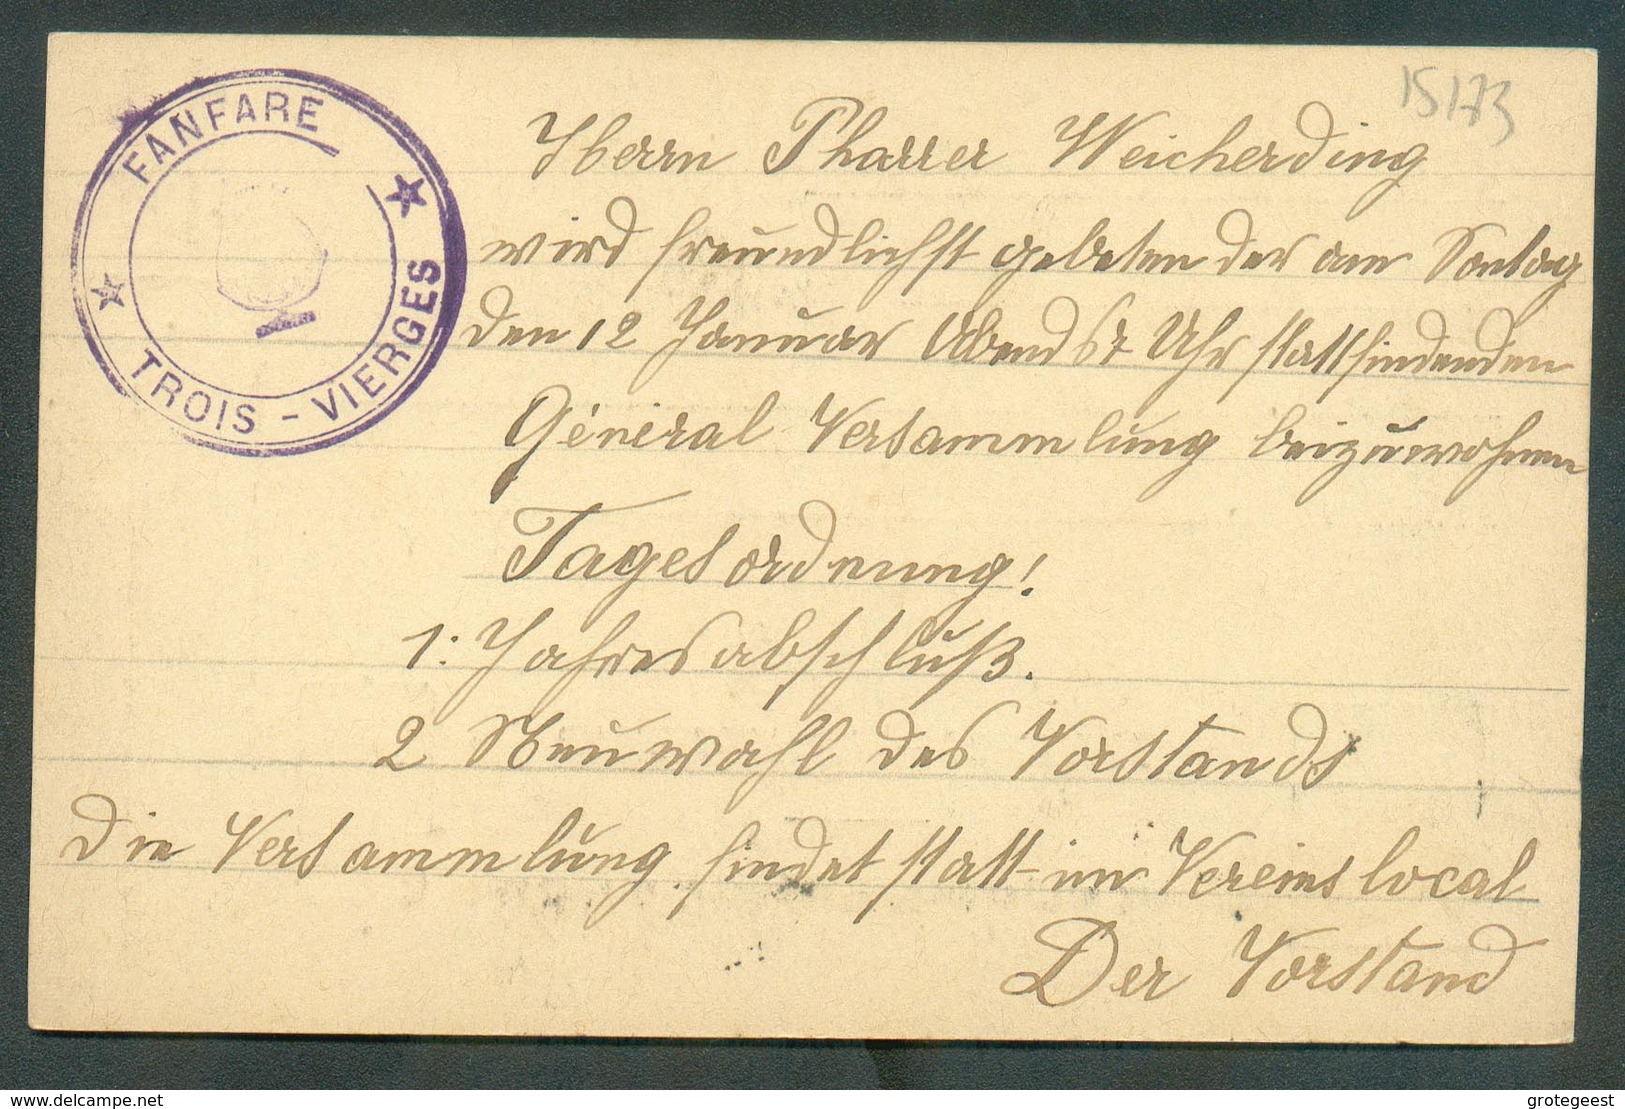 FANFARE
TROIS - VIERGES
15173
Herrn Pharrer Weicherding
wird freundlichst gebeten der am Sontag
den 12 Januar Abends 7 Uhr stattfindenden
Général Versammlung beizuwohnen
Tagesordnung!
1: Jahresabschluß.
2 Neuwahl des Vorstands
Die Versammlung findet statt im Vereinslocal
Der Vorstand
www.delcampe.net
grotegeest